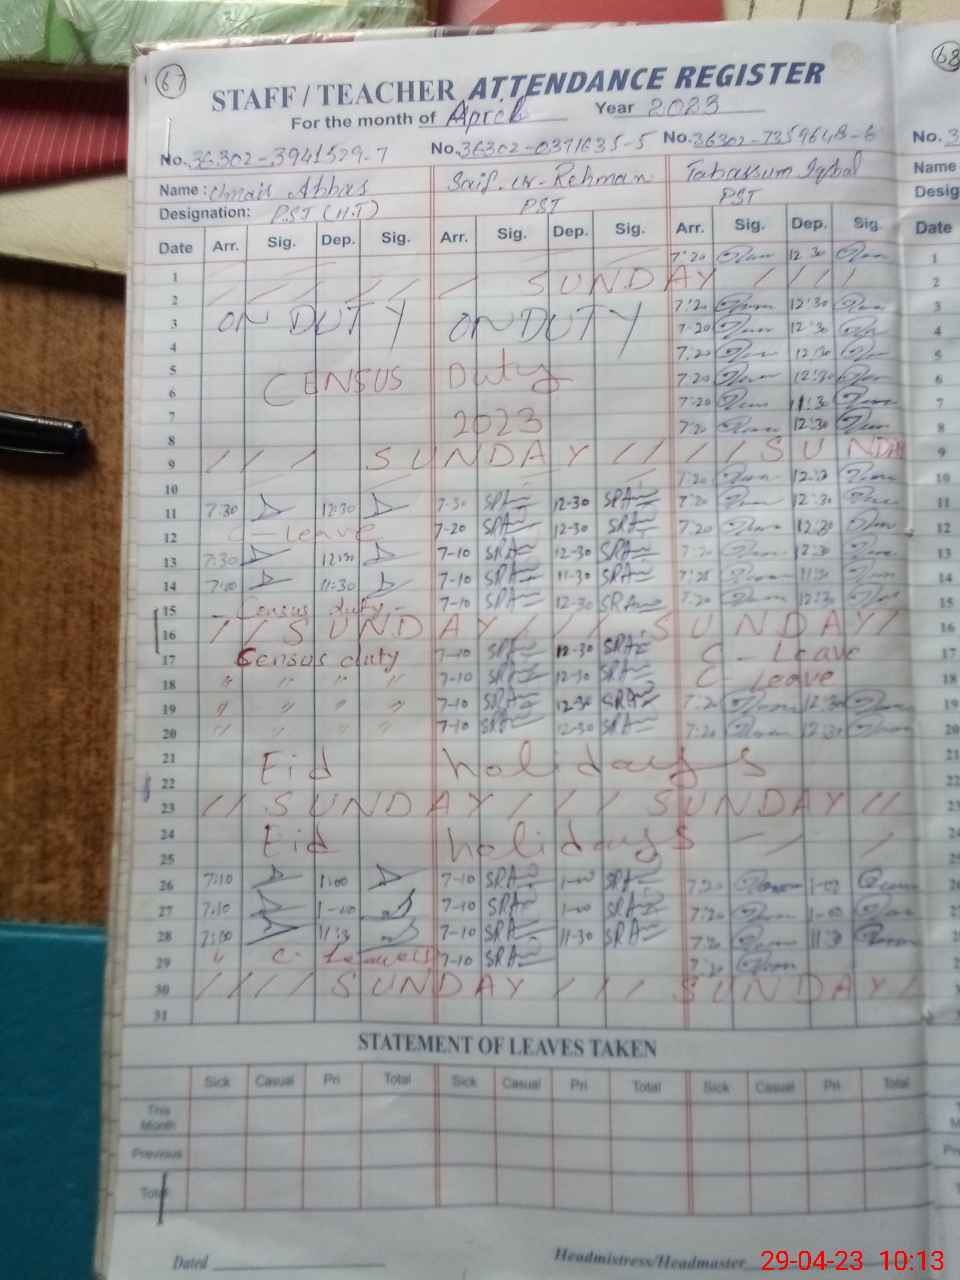 67
68
STAFF / TEACHER ATTENDANCE REGISTER
For the month of April Year 2023
No. 36302-3941529-7 No. 36302-0371635-5 No. 36302-7359648-6 No. 3
Name: Umair Abbas Saif-ur-Rehman Tabassum Iqbal Name
Designation: PST (H.T) PST PST Desig
Date Arr. Sig. Dep. Sig. Arr. Sig. Dep. Sig. Arr. Sig. Dep. Sig. Date
1 7:20 12:30 1
2 / / / / / / SUNDAY / / / / 2
3 ON DUTY ON DUTY 7:20 12:30 3
4 7:20 12:30 4
5 7:20 12:30 5
6 CENSUS Duty 7:20 12:30 6
7 7:20 11:30 7
8 2023 7:20 12:30 8
9 / / / SUNDAY / / / / SUNDAY 9
10 7:20 10
11 7:30 12:30 7-30 12-30 7:20 12:30 11
12 C-Leave 7-20 12-30 7:20 12:30 12
13 7:30 7-10 12-30 7:20 12:30 13
14 7:00 11:30 7-10 11-30 7:20 11:30 14
15 - Census duty - 7-10 12-30 7:20 12:30 15
16 / / SUNDAY / / / / SUNDAY / / 16
17 Census duty 7-10 12-30 C-Leave 17
18 " " " " 7-10 12-30 C-Leave 18
19 " " " " 7-10 12-30 7:20 12:30 19
20 " " " " 7-10 12-30 7:20 12:30 20
21 Eid holidays
22
23 / / SUNDAY / / / SUNDAY / /
24 Eid holidays
25
26 7:10 1:00 7-10 1-00 7:20 1-00
27 7:10 1-00 7-10 1-00 7:20 1-00
28 7:00 11:30 7-10 11-30 7:20 11:30
29 7-10 7:20
30 / / / / SUNDAY / / / SUNDAY /
31
STATEMENT OF LEAVES TAKEN
Sick Casual Pri Total Sick Casual Pri Total Sick Casual Pri Total
This Month
Previous
Total
Dated Headmistress/Headmaster
29-04-23 10:13